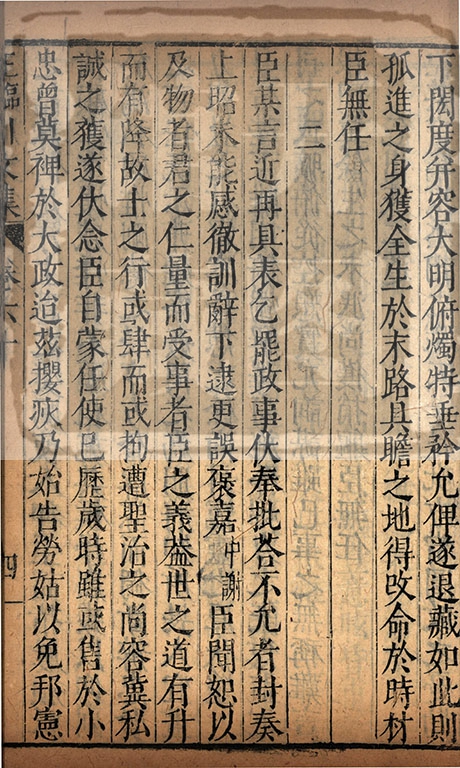 下閎度并容大明俯燭特垂矜允俾遂退藏如此則
孤進之身獲全生於末路具瞻之地得改命於時材
臣無任
二
臣某言近再具表乞罷政事伏奉批荅不允者封奏
上昭未能感徹訓辭下逮更誤褒嘉中謝臣聞恕以
及物者君之仁量而受事者臣之義葢世之道有升
而有降故士之行或肆而或拘遭聖治之尚容冀私
誠之獲遂伏念臣自蒙任使已歷歲時雖或售於小
忠曾莫裨於大政迨茲攖疢乃始告勞姑以免邦憲
王臨川文集 卷六十 四